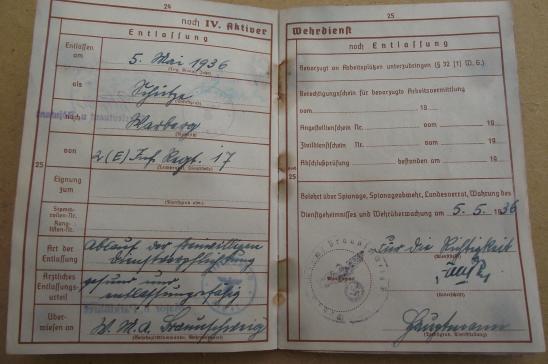 24
noch IV. Aktiver
Entlassung
Entlassen am
5. Mai 1936
(Tag, Monat, Jahr)
als
Schütze
(Dienstgrad)
nach
Warberg
von
2.(E) Inf. Regt. 17
Eignung zum
(Dienstgrad usw.)
Stammrollen-Nr.
Rang-
listen-Nr.
Art der Entlassung
Ablauf der freiwilligen
Dienstverpflichtung
Ärztliches
Entlassungs-
urteil
gesund und
entlassungsfähig
Über-
wiesen an
W. M. A. Braunschweig
25
25
Wehrdienst
noch Entlassung
Bevorzugt an Arbeitsplätzen unterzubringen (§ 32 [1] W. G.)
Berechtigungsschein für bevorzugte Arbeitsvermittlung
vom 19
Angestelltenschein Nr. vom 19
Zivildienstschein Nr. vom 19
Abschlußprüfung bestanden am 19
Belehrt über Spionage, Spionageabwehr, Landesverrat, Wahrung des
Dienstgeheimnisses und Wehrüberwachung am 5. 5. 1936
Für die Richtigkeit
(Unterschrift)
Hauptmann
25